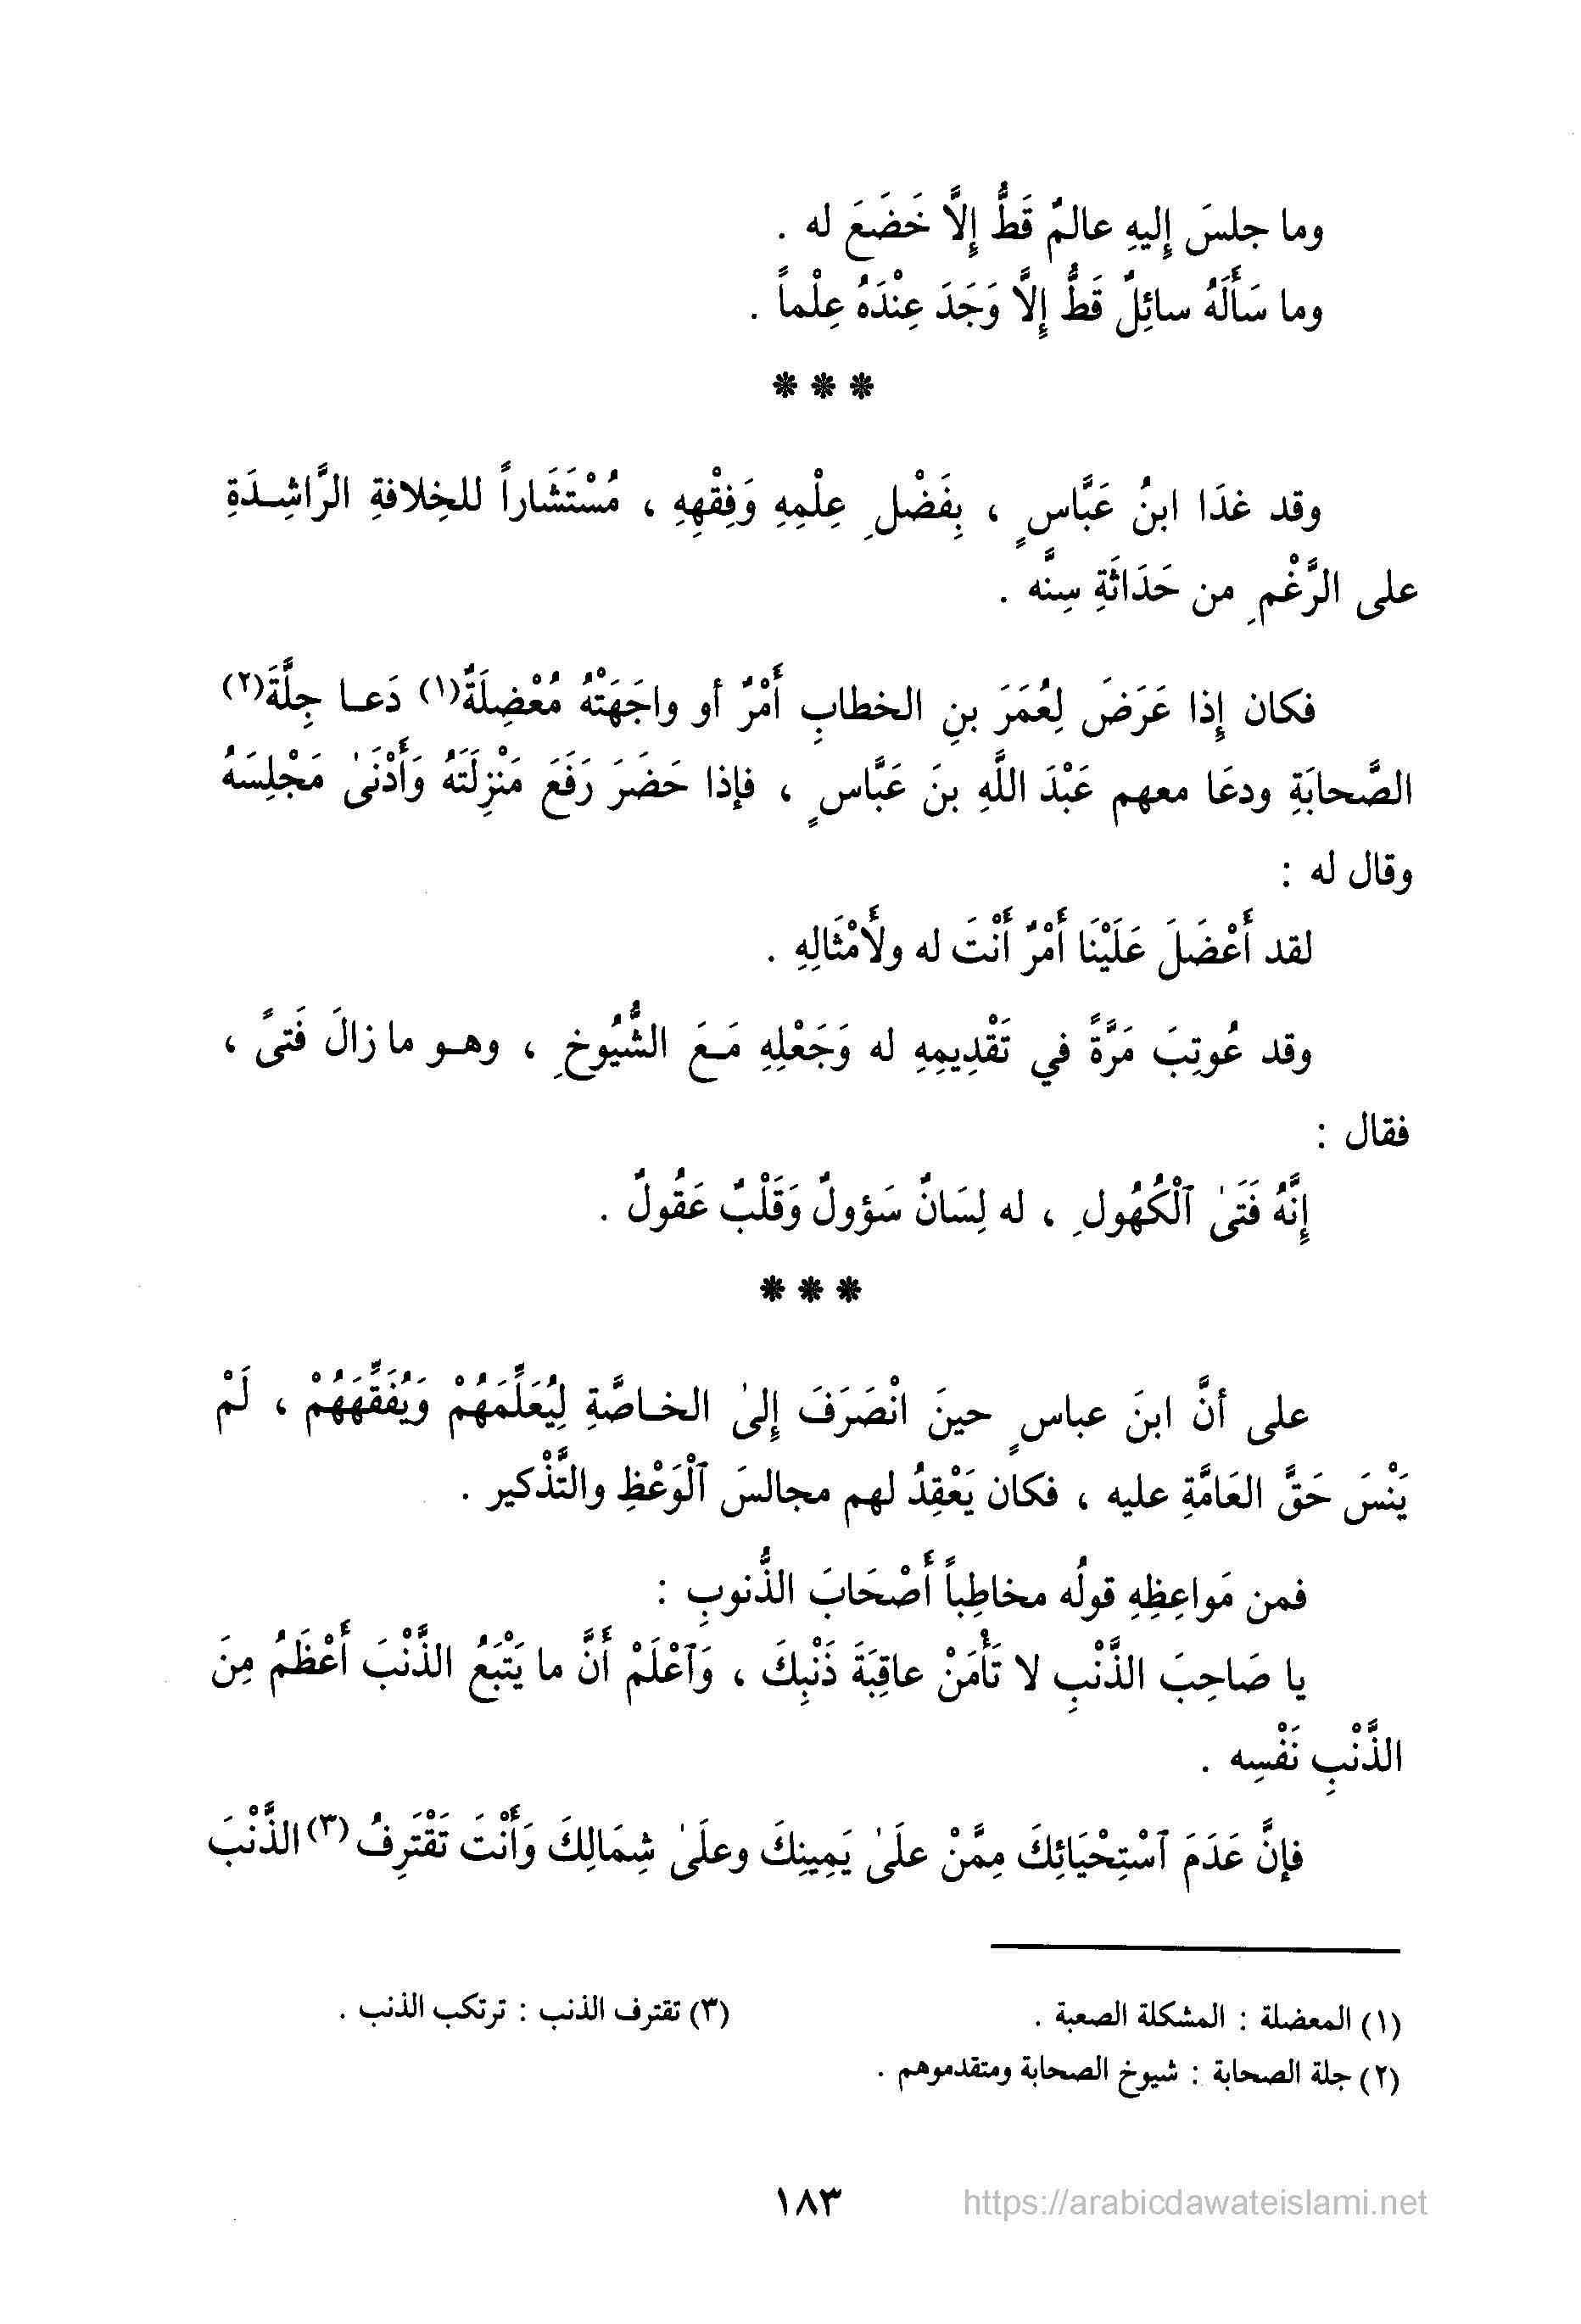 وما جلسَ إِليهِ عالمٌ قَطُّ إِلَّا خَضَعَ له .
وما سَأَلَهُ سائِلٌ قَطُّ إِلَّا وَجَدَ عِنْدَهُ عِلْماً .
* * *
وقد غدَا ابنُ عَبَّاسٍ ، بِفَضْلِ عِلْمِهِ وَفِقْهِهِ ، مُسْتَشَاراً للخِلافةِ الرَّاشِـدَةِ
على الرَّغْمِ من حَدَاثَةِ سِنِّه .
فكان إِذا عَرَضَ لِعُمَرَ بنِ الخطابِ أَمْرٌ أو واجَهَتْهُ مُعْضِلَةٌ(١) دَعـا جِلَّةَ(٢)
الصَّحابَةِ ودعَا معهم عَبْدَ اللَّهِ بنَ عَبَّاسٍ ، فإذا حَضَرَ رَفَعَ مَنْزِلَتَهُ وَأَدْنَىٰ مَجْلِسَهُ
وقال له :
لقد أَعْضَلَ عَلَيْنَا أَمْرٌ أَنْتَ له ولأَمْثَالِهِ .
وقد عُوتِبَ مَرَّةً في تَقْدِيمِهِ له وَجَعْلِهِ مَـعَ الشُّيُوخِ ، وهـو ما زالَ فَتىً ،
فقال :
إِنَّهُ فَتَىٰ ٱلْكُهُولِ ، له لِسَانٌ سَؤولٌ وَقَلْبٌ عَقُولٌ .
* * *
على أنَّ ابنَ عباسٍ حينَ انْصَرَفَ إِلىٰ الخـاصَّةِ لِيُعَلِّمَهُمْ وَيُفَقِّهَهُمْ ، لَمْ
يَنْسَ حَقَّ العَامَّةِ عليه ، فكان يَعْقِدُ لهم مجالسَ ٱلْوَعْظِ والتَّذْكير .
فمن مَواعِظِهِ قولُه مخاطِباً أَصْحَابَ الذُّنوبِ :
يا صَاحِبَ الذَّنْبِ لا تَأْمَنْ عاقِبَةَ ذَنْبِكَ ، وَٱعْلَمْ أَنَّ ما يَتْبَعُ الذَّنْبَ أَعْظَمُ مِنَ
الذَّنْبِ نَفْسِه .
فإنَّ عَدَمَ ٱسْتِحْيَائِكَ مِمَّنْ علَىٰ يَمِينِكَ وعلَىٰ شِمَالِكَ وَأَنْتَ تَقْتَرِفُ(٣) الذَّنْبَ
(١) المعضلة : المشكلة الصعبة .
(٢) جلة الصحابة : شيوخ الصحابة ومتقدموهم .
(٣) تقترف الذنب : ترتكب الذنب .
١٨٣
https://arabicdawateislami.net